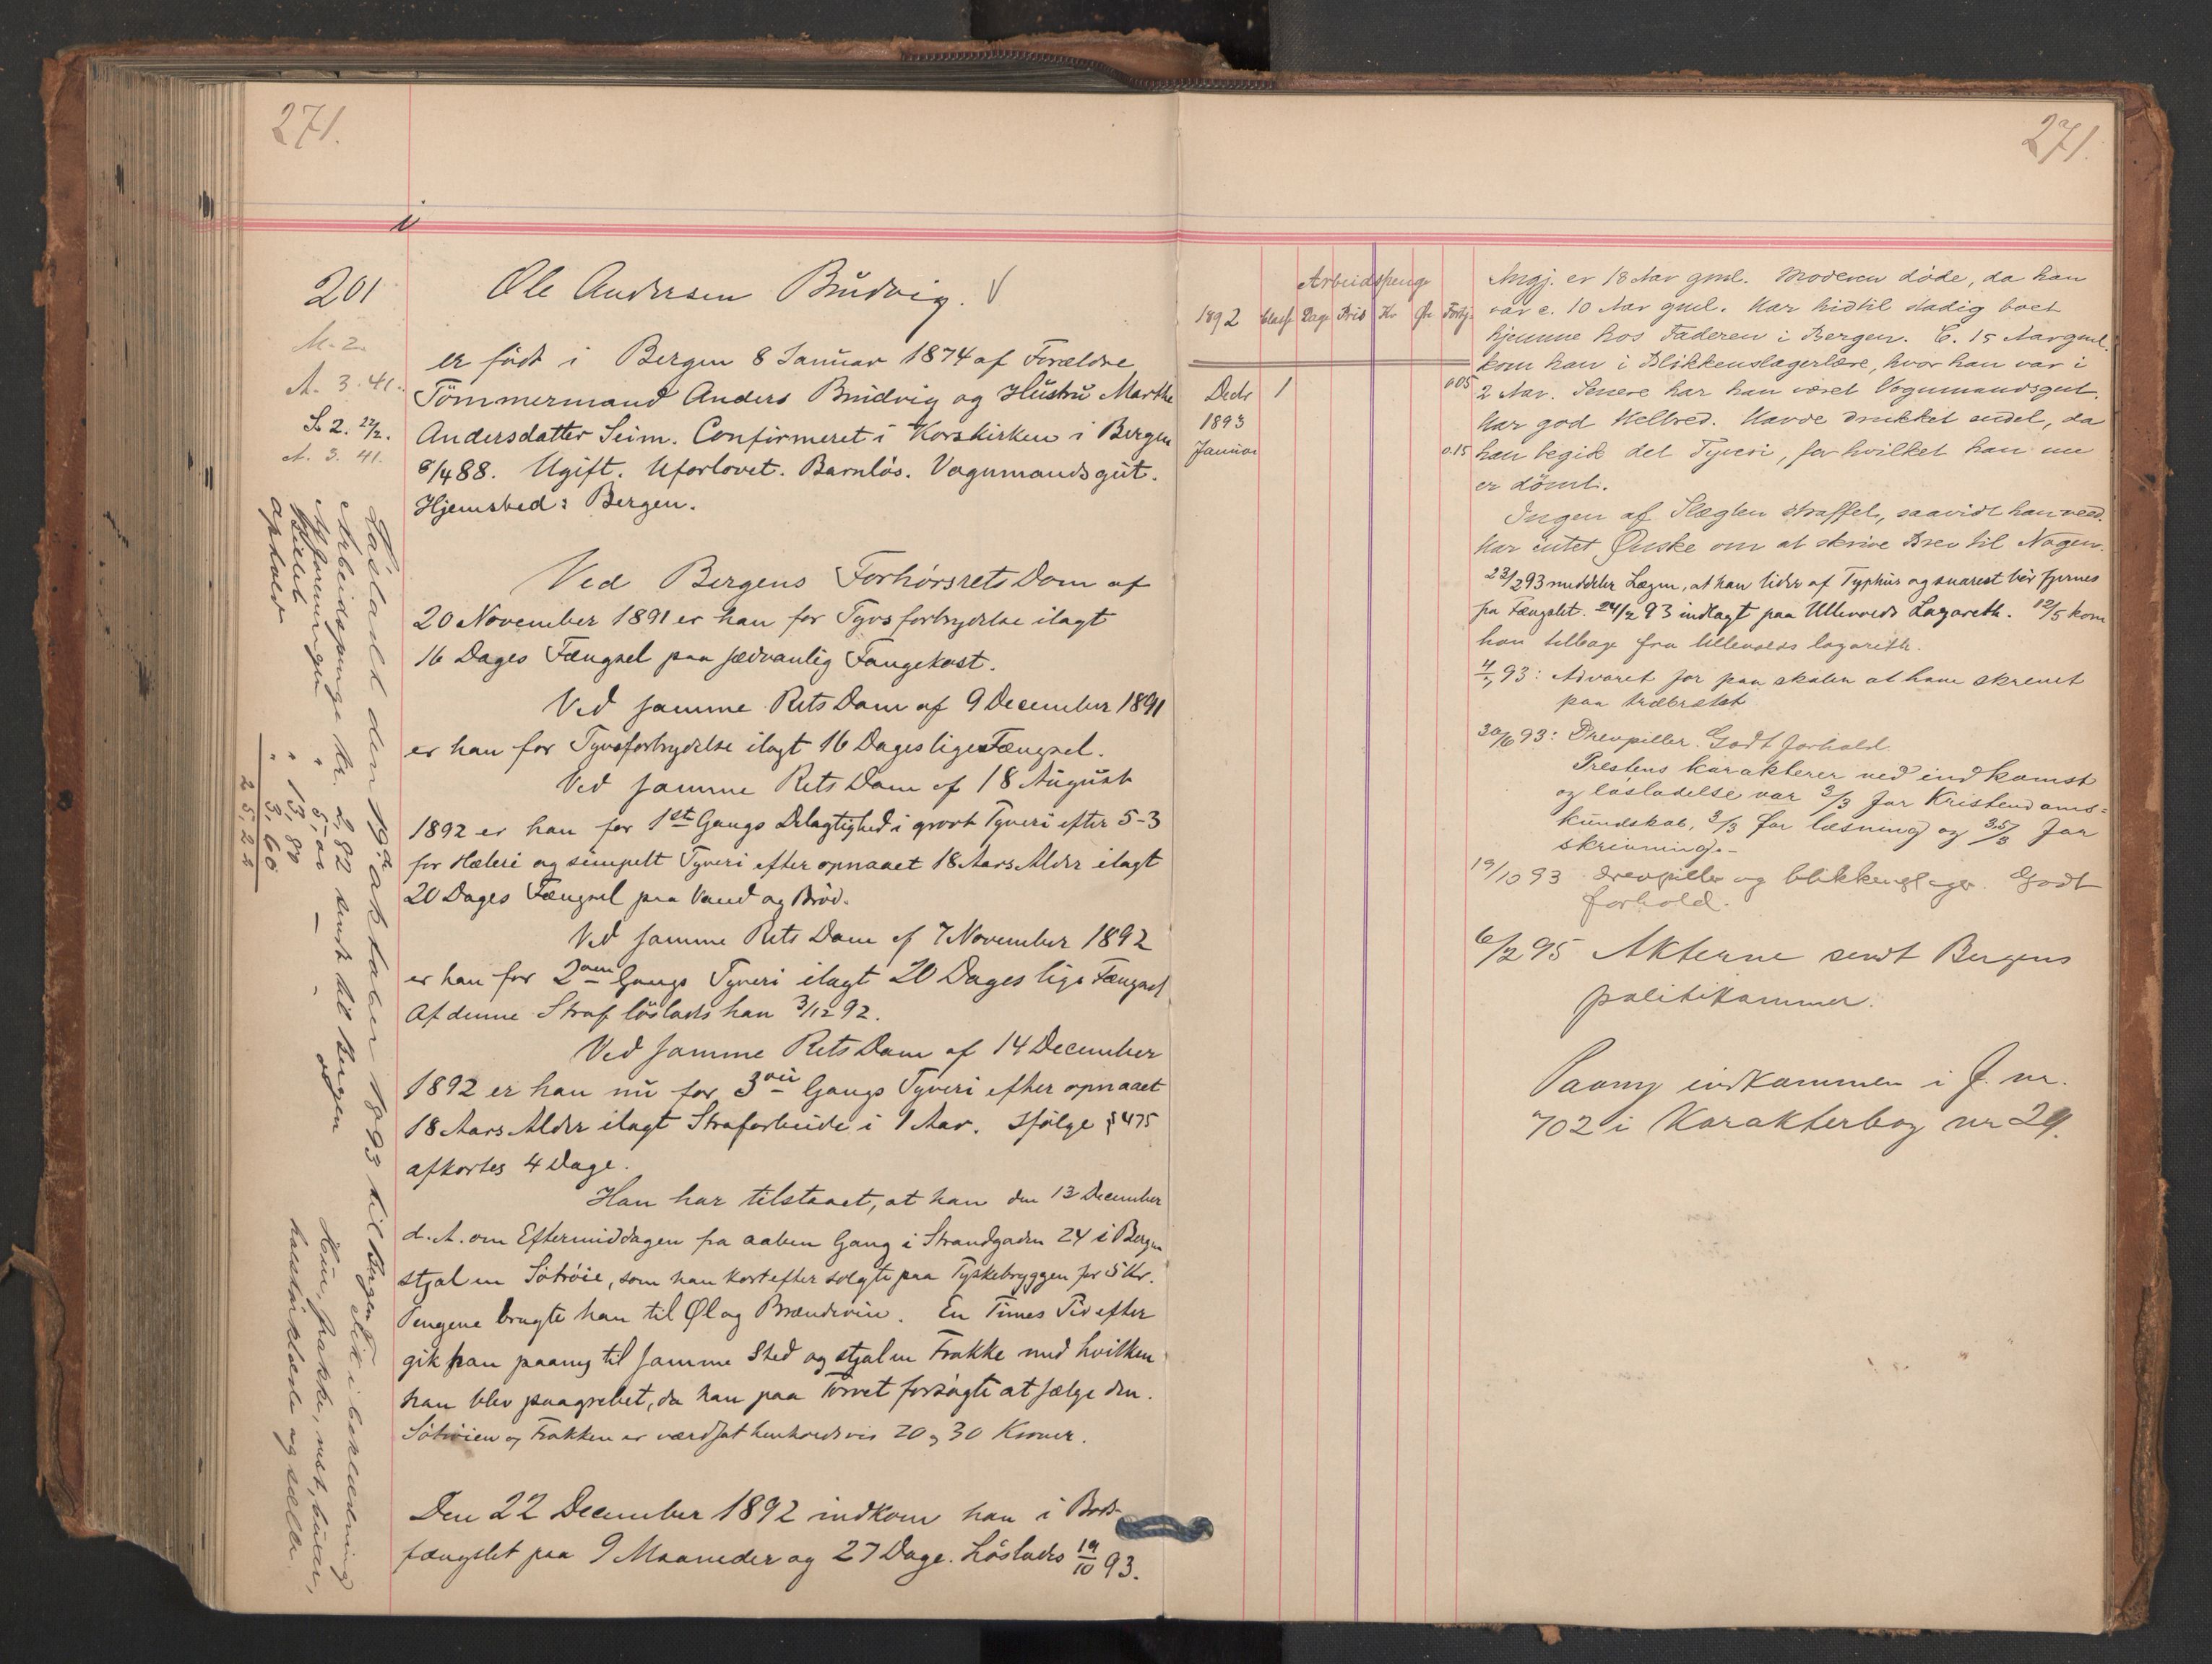 271.
i
201
M. 2.
A. 3. 41.
S 2. 22/2.
A. 3. 41.
Ole Andersen Brudvig. V
er født i Bergen 8 Januar 1874 af Forældre
Tömmermand Anders Brudvig og Hustru Marthe
Andersdatter Seim. Confirmeret i Korskirken i Bergen
8/4 88. Ugift. Uforlovet. Barnlös. Vognmandsgut.
Hjemsted: Bergen.
Ved Bergens Forhörsrets Dom af
20 November 1891 er han for Tyvsforbrydelse ilagt
16 Dages Fængsel paa sædvanlig Fangekost.
Ved samme Rets Dom af 9 December 1891
er han for Tyvsforbrydelse ilagt 16 Dages lige Fængsel.
Ved samme Rets Dom af 18 August
1892 er han for 1st Gangs Delagtighed i grovt Tyveri efter 5-3
for Hæleri og simpelt Tyveri efter opnaaet 18 Aars Alder ilagt
20 Dages Fængsel paa Vand og Bröd.
Ved samme Rets Dom af 7 November 1892
er han for 2den Gangs Tyveri ilagt 20 Dages lige Fængsel
Af denne Straf löslads han 3/12 92.
Ved samme Rets Dom af 14 December
1892 er han nu for 3die Gangs Tyveri efter opnaaet
18 Aars Alder ilagt Strafarbeide i 1 Aar. Ifölge § 475
afkortes 4 Dage.
Han har tilstaaet, at han den 13 December
d. A. om Eftermiddagen fra aaben Gang i Strandgaden 24 i Bergen
stjal en Sötröie, som han kort efter solgte paa Tyskebryggen for 5 Kr.
Pengene brugte han til Øl og Brændevin. En Times Tid efter
gik han paany til samme Sted og stjal en Frakke med hvilken
han blev paagrebet, da han paa Torvet forsögte at sælge den.
Sötröien og Frakken er værdsat henholdsvis 20 og 30 Kroner.
Den 22 December 1892 indkom han i Bods-
fængslet paa 9 Maaneder og 27 Dage. Löslades 19/10 93.
Lösladt den 19de oktober 1893 til Bergen. Fik i beklædning
Arbeidspenge kr. 2,82 sendt til Bergen
" 5,00 — "
Billet " 13,80
ophold " 3,60
25,22
frakke, vest, buxer,
og
271.
Arbeidspenge
1892 Classe Dage Pris Kr Øre Fortj.
Decbr 1 0.05
1893
Januar 0.15
Angj. er 18 Aar gml. Moderen döde, da han
var c. 10 Aar gml. Har hidtil stadig boet
hjemme hos Faderen i Bergen. C. 15 Aar gml.
kom han i Blikkenslagerlære, hvor han var i
2 Aar. Senere har han været Vognmandsgut.
Har god Helbred. Havde drukket endel, da
han begik det Tyveri, for hvilket han nu
er dömt.
Ingen af Slægten straffet, saavidt han veed.
Har intet Ønske om at skrive Brev til Nogen.
23/2 93 meddeler Lægen, at han lider af Typhus og snarest bör fjernes
fra Fængslet. 24/2 93 indlagt paa Ullevolds Lazareth. 12/5 kom
han tilbage fra Ullevolds lazareth.
93: Advaret for paa skolen at have skrevet
paa træbrættet
30/6 93: Drevpiller. Godt forhold.
Prestens karakterer ved indkomst
og løsladelse var 3/3 for Kristendoms-
kundskab, 3/3 for læsning og 3.5/3 for
skrivning.-
19/10 93 Drevpiller og blikkenslager. Godt
forhold.
6/2 95 Akterne sendt Bergens
politikammer.
Paany indkommen i J. nr.
702 i Karakterbog nr 29.